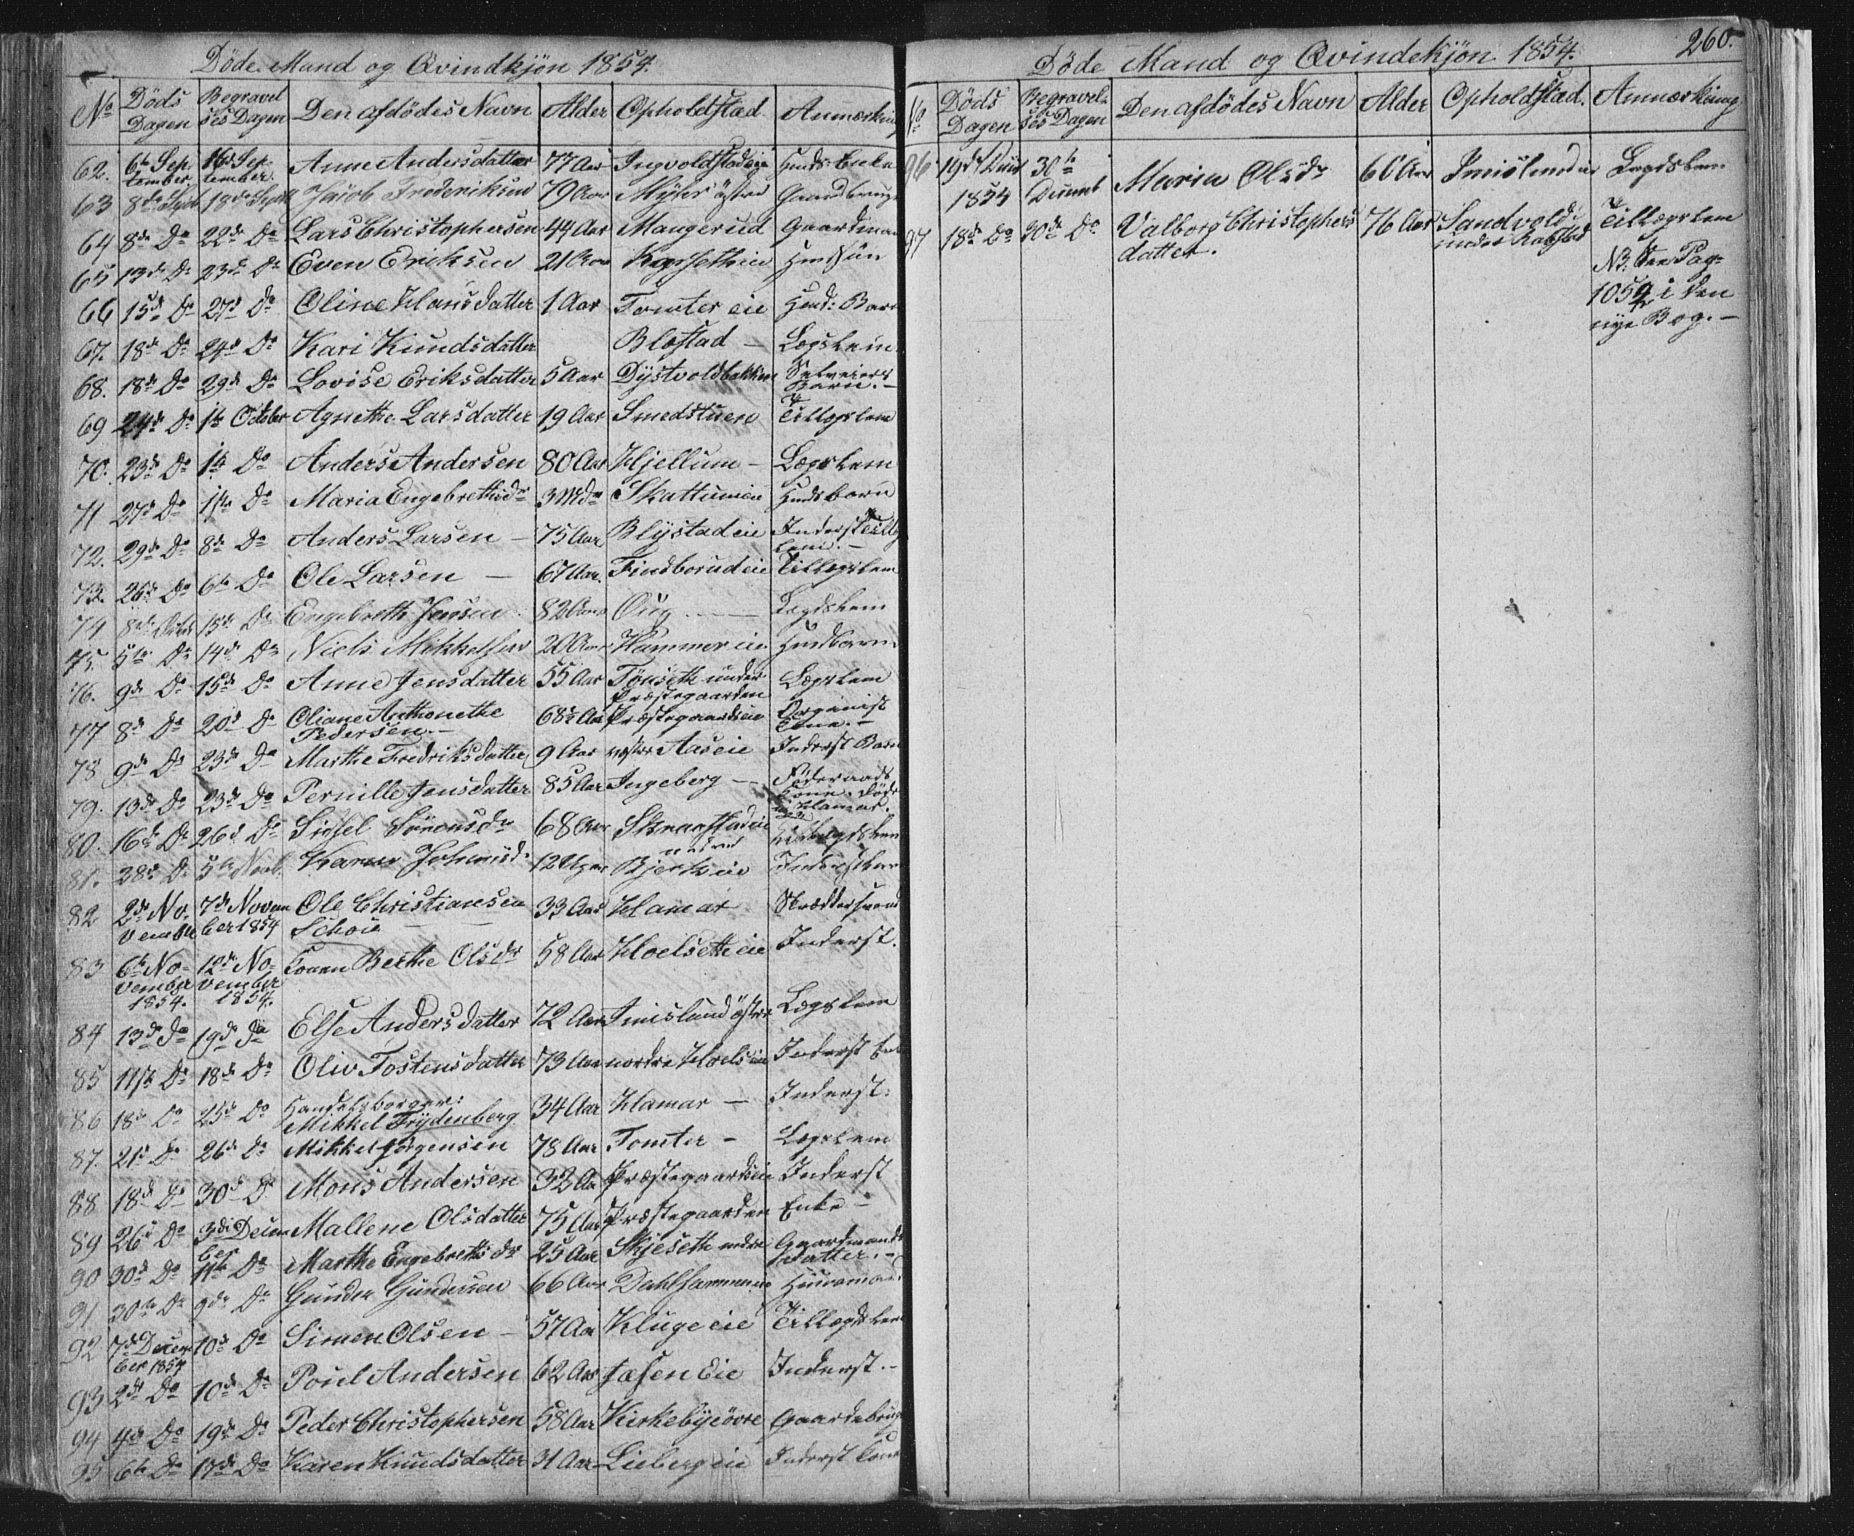 Døde Mand og Qvindkjøn 1854.
No Døds Dagen Begravelses Dagen Den afdødes Navn Alder Opholdstad. Anmærkning
62. 6te September 16de September Anne Andersdatter 77 Aar Ingvoldstadeie Huusmds Enke
63 8de Septb 18de Septb Jacob Frederiksen 79 Aar østre Gaardbruger
64 8de Do 22de Do Lars Christophersen 44 Aar Mangerud Gaardmand
65 13de Do 23de Do Even Eriksen 21 Aar
66 15de Do 27de Do Oline Hansdatter 1 Aar Tomter eie Husmd: Barn
67. 18de Do 24de Do Kari Knudsdatter Blæstad – Lægslem
68. 18de Do 29de Do Lovise Eriksdatter 5 Aar Dystvoldbakken Selveiers Barn. –
69 24de Do 1te October Agnethe Larsdatter 19 Aar Smedstuen Tillægslem
70. 23de Do 1te Do Anders Andersen 80 Aar Hjellum – Lægslem
71 27de Do Do Maria Engebrethsdr 3 Mdr Skattumeie Husmdsbarn
72. 29de Do 8de Do Anders Larsen – 75 Aar Blystad eie Inderst Tillægslem. –
73. 26de Do 6te Do Ole Larsen – 67 Aar. Finsborud eie Tillægslem
74 8de Octbr 15de Do Engebreth Jensen 82 Aar Oug – Lægdslem
75. 5te Do 14de Do Niels Mikkelsen 20 Aar Hammer eie
76. 9de Do 15de Do Anne Jensdatter 55 Aar Tønseth under Præstegaarden Lægslem
77 8de Do 20de Do Oliane Anthonethe Pedersen. – 68½ Aar Præstegaardseie Organist Kone. –
78 9de Do 23de Do Marthe Fredriksdatter 9 Aar vestre Aaseie Inderst Barn
79. 13de Do 23de Do Pernille Jensdatter 85 Aar Ingeberg – Føderaads Kone. Døde i Hamar.
80. 16de Do 26de Do Sidsel Sørensdr 68 Aar
81. 28de Do 5te Novb. Karen Johansd. 12 Uger nedre Bjerke eie
82 2de November 7de November 1854 Ole Christiansen Schøie – 33 Aar Hamar Skrædersvend
83 6te November 1854. 12de November 1854. Berthe Olsdr 58 Aar Hoelsetheie Inderst.
84 13de Do 19de Do Else Andersdatter 72 Aar Imislund østre Lægslem
85 11te Do 18de Do Oliv Tostensdatter 73 Aar nordre Hoelseie Inderst Enke
86 18de Do 25de Do Handelsborger: Mikkel Frydenberg 34 Aar Hamar – Inderst:
87. 21de Do 26de Do Mikkel Jørgensen 78 Aar Tomter – Lægslem
88 18de Do 30de Do Mons Andersen 32 Aar Præstegaardseie Inderst
89 26de Do 3die December Mallene Olsdatter 75 Aar Præstegaarden Enke –
90 30de Do 11te Do Marthe Engebrethsdr 25 Aar Skjeseth nedre Gaardmands datter. –
91 30te Do 9de Do Gunder Gundersen 66 Aar Huusmand
92 7de December 1854 10de Do Simen Olsen – 57 Aar Kluge eie Tillægslem
93 2de Do 10de Do Poul Andersen 62 Aar Inderst. –
94 4de Do 19de Do Peder Christophersen 58 Aar Kirkebye øvre Gaardbruger
95 6te Do 17de Do Karen Knudsdatter 31 Aar Lieberg eie Inderst Kone
Døde Mand og Qvindekjøn 1854. 260.
No Døds Dagen Begravelses Dagen Den afdødes Navn Alder Opholdstad. Anmærkning
96 19de 1854 30te Decemb Maria Olsdr 60 Aar Lægdslem
97 18de Do 30de Do Valborg Christophersdatter. 76 Aar Sandvold under Tillægslem
NB. See Pag- 1054 i den nye Bog. –